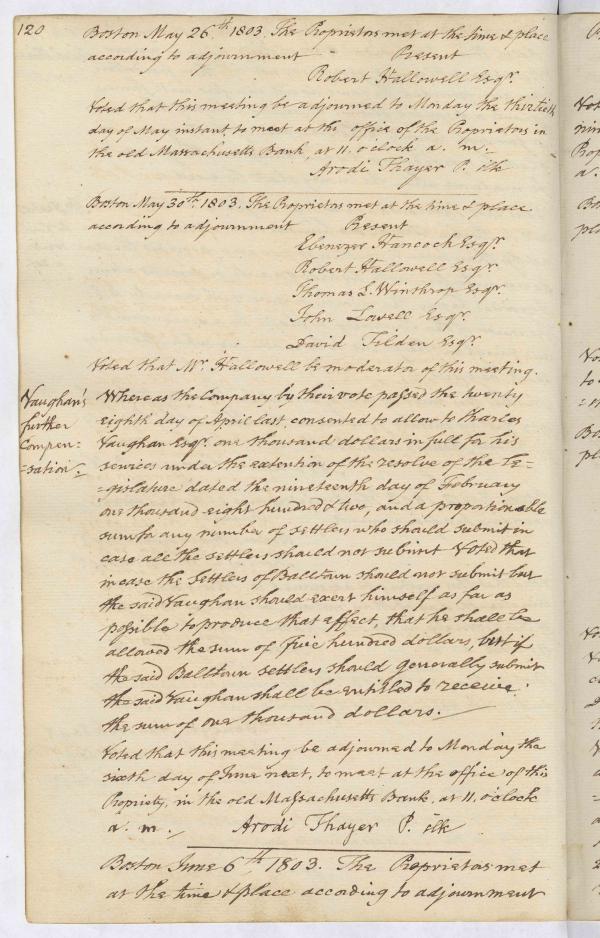 120
Boston May 26.th 1803. The Proprietors met at the time & place
according to adjournment Present
Robert Hallowell Esqr.
Voted that this meeting be adjourned to Monday the thirtieth
day of May instant to meet at the office of the Proprietors in
the old Massachusetts Bank, at 11. o'clock a. m.
Arodi Thayer P. Clk
Boston May 30th. 1803. The Proprietors met at the time & place
according to adjournment Present
Ebenezer Hancock Esqr.
Robert Hallowell Esqr.
Thomas L. Winthrop Esqr.
John Lowell Esqr.
David Tilden Esqr.
Voted that Mr. Hallowell be moderator of this meeting.
Vaughan's
further
Compen=
=sation.
Whereas the Company by their vote passed the twenty
eighth day of April last, consented to allow to Charles
Vaughan Esqr. one thousand dollars in full for his
services under the extention of the resolve of the Le=
=gislature dated the nineteenth day of February
one thousand eight hundred & two, and a proportionable
sum for any number of settlers who should submit in
case all the settlers should not submit Voted that
in case the settlers of Balltown should not submit but
the said Vaughan should exert himself as far as
possible to produce that effect, that he shall be
allowed the sum of five hundred dollars, but if
the said Balltown settlers should generally submit
the said Vaughan shall be entitled to receive
the sum of one thousand dollars.
Voted that this meeting be adjourned to Monday the
sixth day of June next, to meet at the office of this
Propriety, in the old Massachusetts Bank, at 11. o'clock
a. m. Arodi Thayer P. Clk
Boston June 6th 1803. The Proprietors met
at the time & place according to adjournment